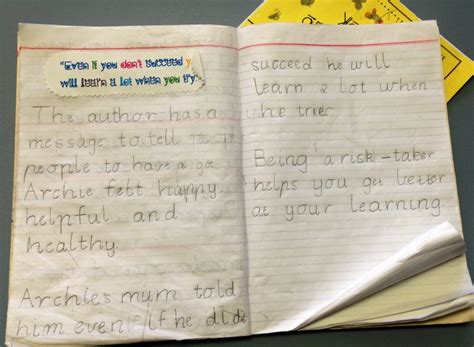 "Even if you don't succeed y
will learn a lot when you try."
The author has a
message to tell
people to have a go.
Archie felt happy,
helpful and
healthy.
Archie's mum told
him even if he did
succeed he will
learn a lot when
he tries.
Being a risk-taker
helps you get better
at your learning.